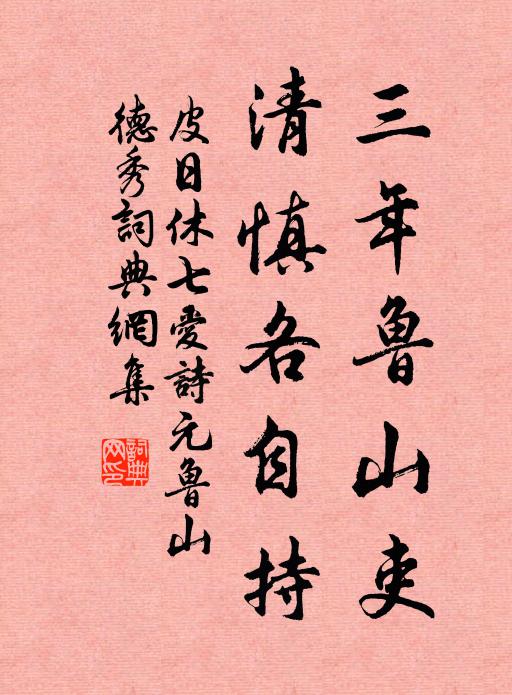 三年魯山吏
清慎各自持
皮日休七愛詩元魯山
德秀詞典網集
詞典网印